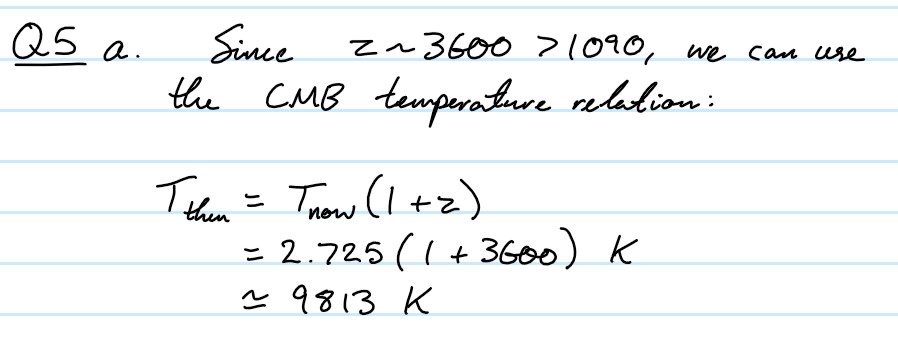 Q5 a. Since z ~ 3600 > 1090, we can use
the CMB temperature relation:
T_then = T_now (1 + z)
= 2.725 (1 + 3600) K
≃ 9813 K